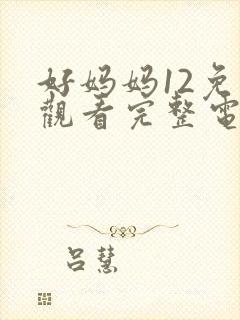 好妈妈12免
觀看完整電
吕慧